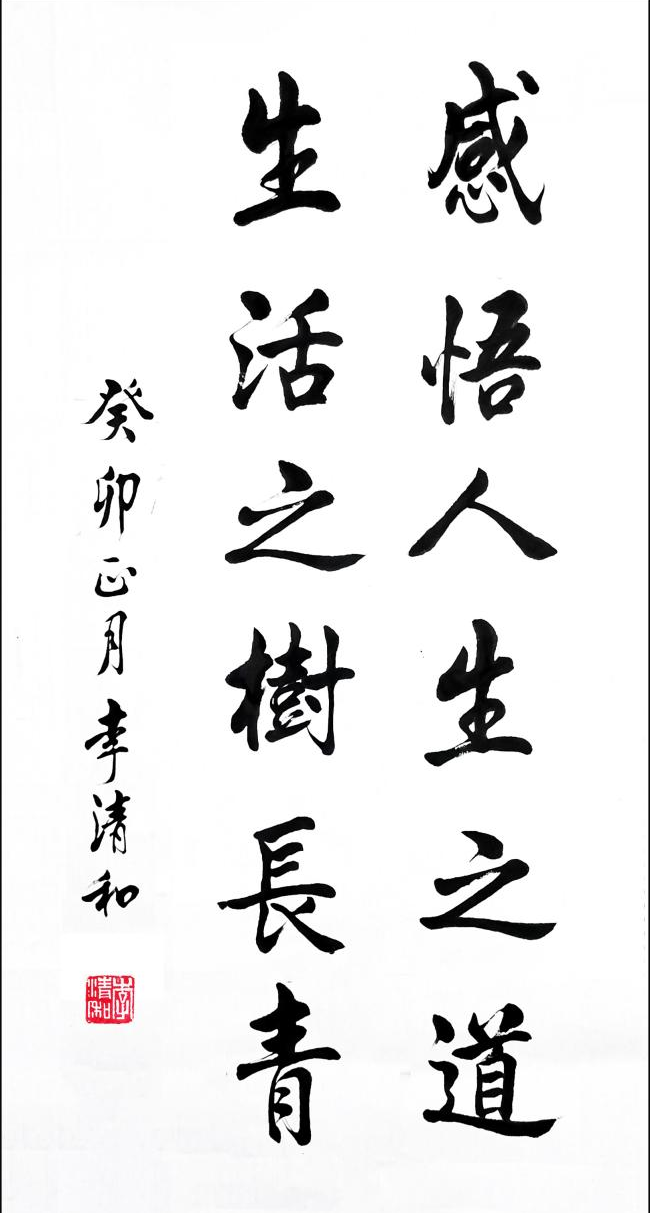 感悟人生之道
生活之樹長青
癸卯正月李清和
李清和